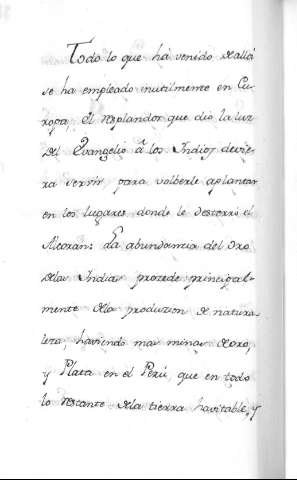 Todo lo que há venido de allá
se ha empleado inutilmente en Eu-
ropa, el resplandor que dio la luz
del Evangelio â los Indios devie-
ra servir para volberle aplantar
en los lugares donde le desterró el
Alcoran: La abundancia del Oro
delas Indias prozede principal-
mente dela produzion de natura-
leza, haviendo mas minas de oro,
y Plata en el Perú, que en todo
lo restante dela tierra havitable, y